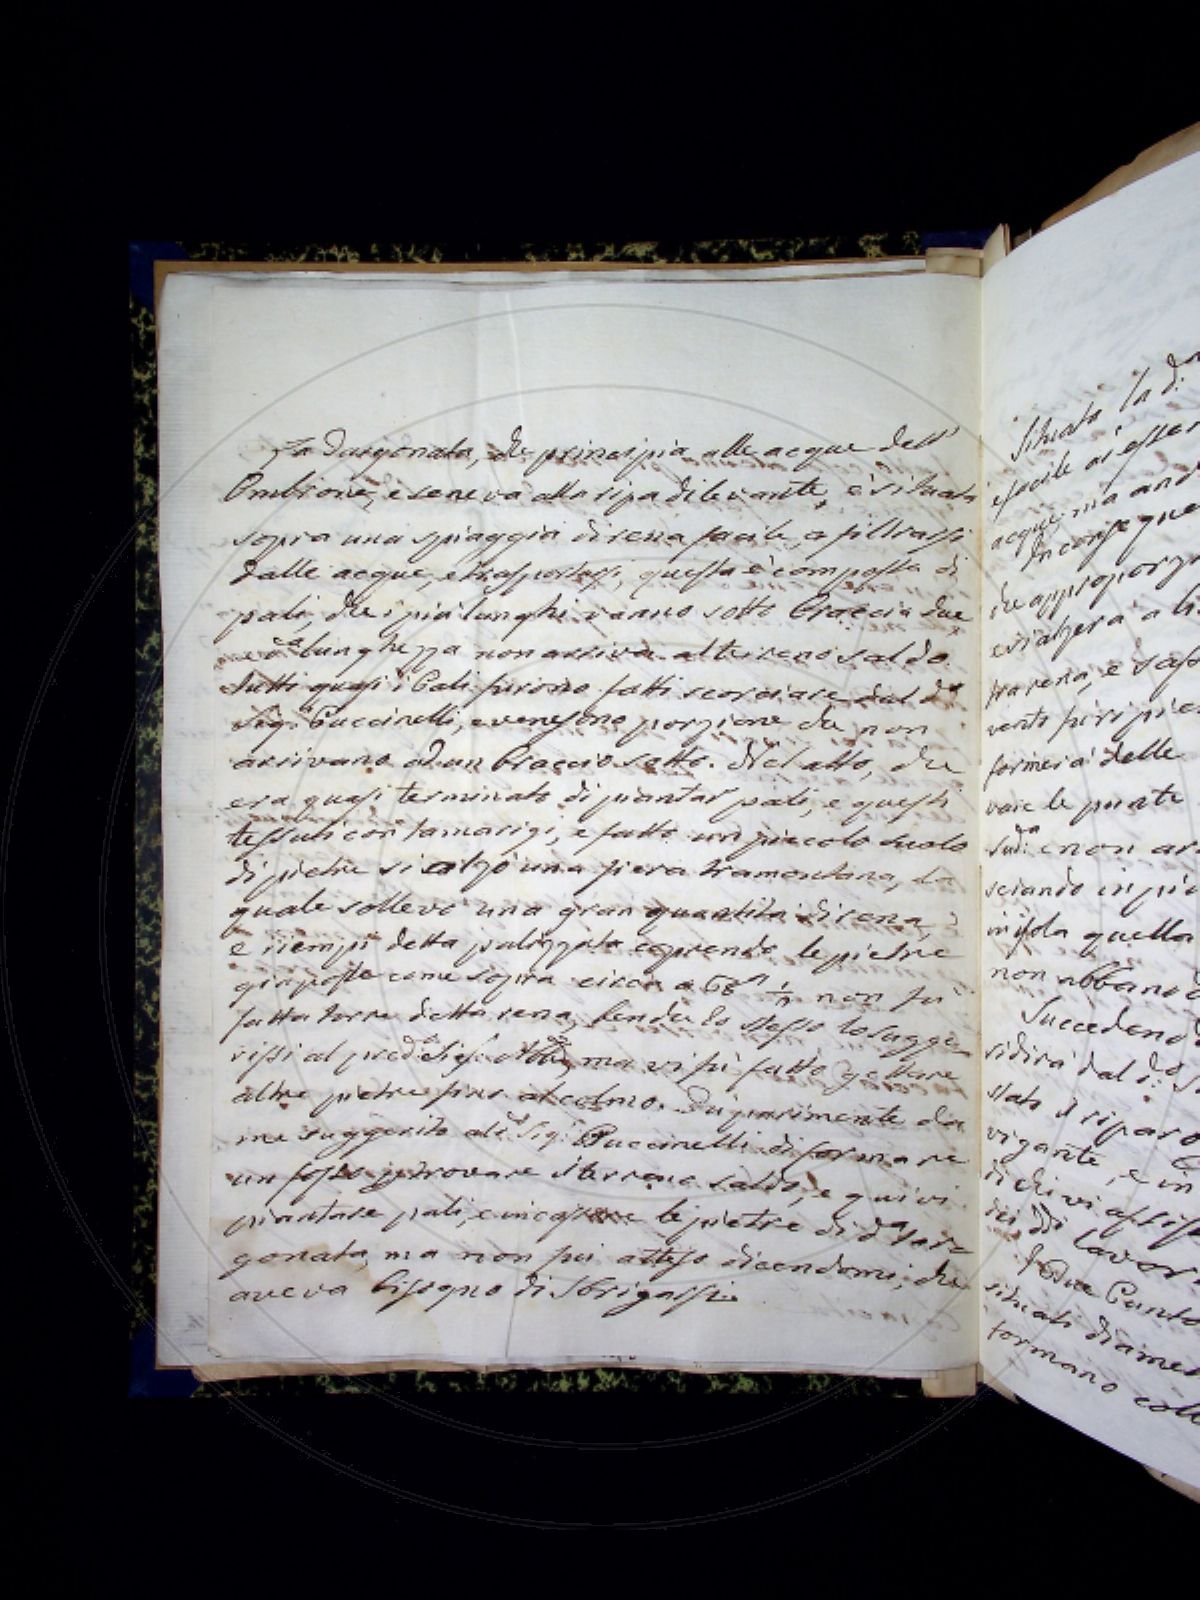 La Sargonata, che principia alle acque dell'
Ombrone, e seneva alla ripa di levante, è situata
sopra una spiaggia di rena facile a filtrarsi
dalle acque, e trasportarsi, questa è composta di
pali, che i più lunghi vanno sotto braccia due
e d.a lunghezza non arriva al terreno saldo.
Tutti quasi i Pali furono fatti scorciare dal d.o
Sig.r Puccinelli, e venesono porzione che non
arrivano ad un braccio sotto. Nel atto, che
era quasi terminato di piantar pali, e questi
tessuti con tamarigi, e fatto un piccolo suolo
di pietre si alzò una fiera tramontana, la
quale sollevò una gran quantità di rena,
e riempì detta palizzata coprendo le pietre
già poste come sopra circa a 1/2 non fù
fatta torre detta rena, benche lo stesso lo sugge
rissi al pred.o ma vi fù fatto gettare
altre pietre fino al colmo. Fu parimente da
me suggerito al d.o Sig.r Puccinelli di formare
un fosso p trovare il terreno saldo, e quivi
piantare pali, e incassare le pietre di d.a Sar=
gonata, ma non fui atteso dicendomi, che
aveva bisogno di sbrigarsi.
Situato la d.
è facile a essere
acque, ma and
In conseque
che
e rialzerà a
tra rena, e sass
vento
formerà delle
vare le punte
sud.a e non arr
sciando in più
in isola quella
non abbano
Succedendo
sidirà dal d.o
stato il riparo
vigante, e in
di chi vi assiste
dei dd. lavori
I due Punto
situati diamet
formano colle